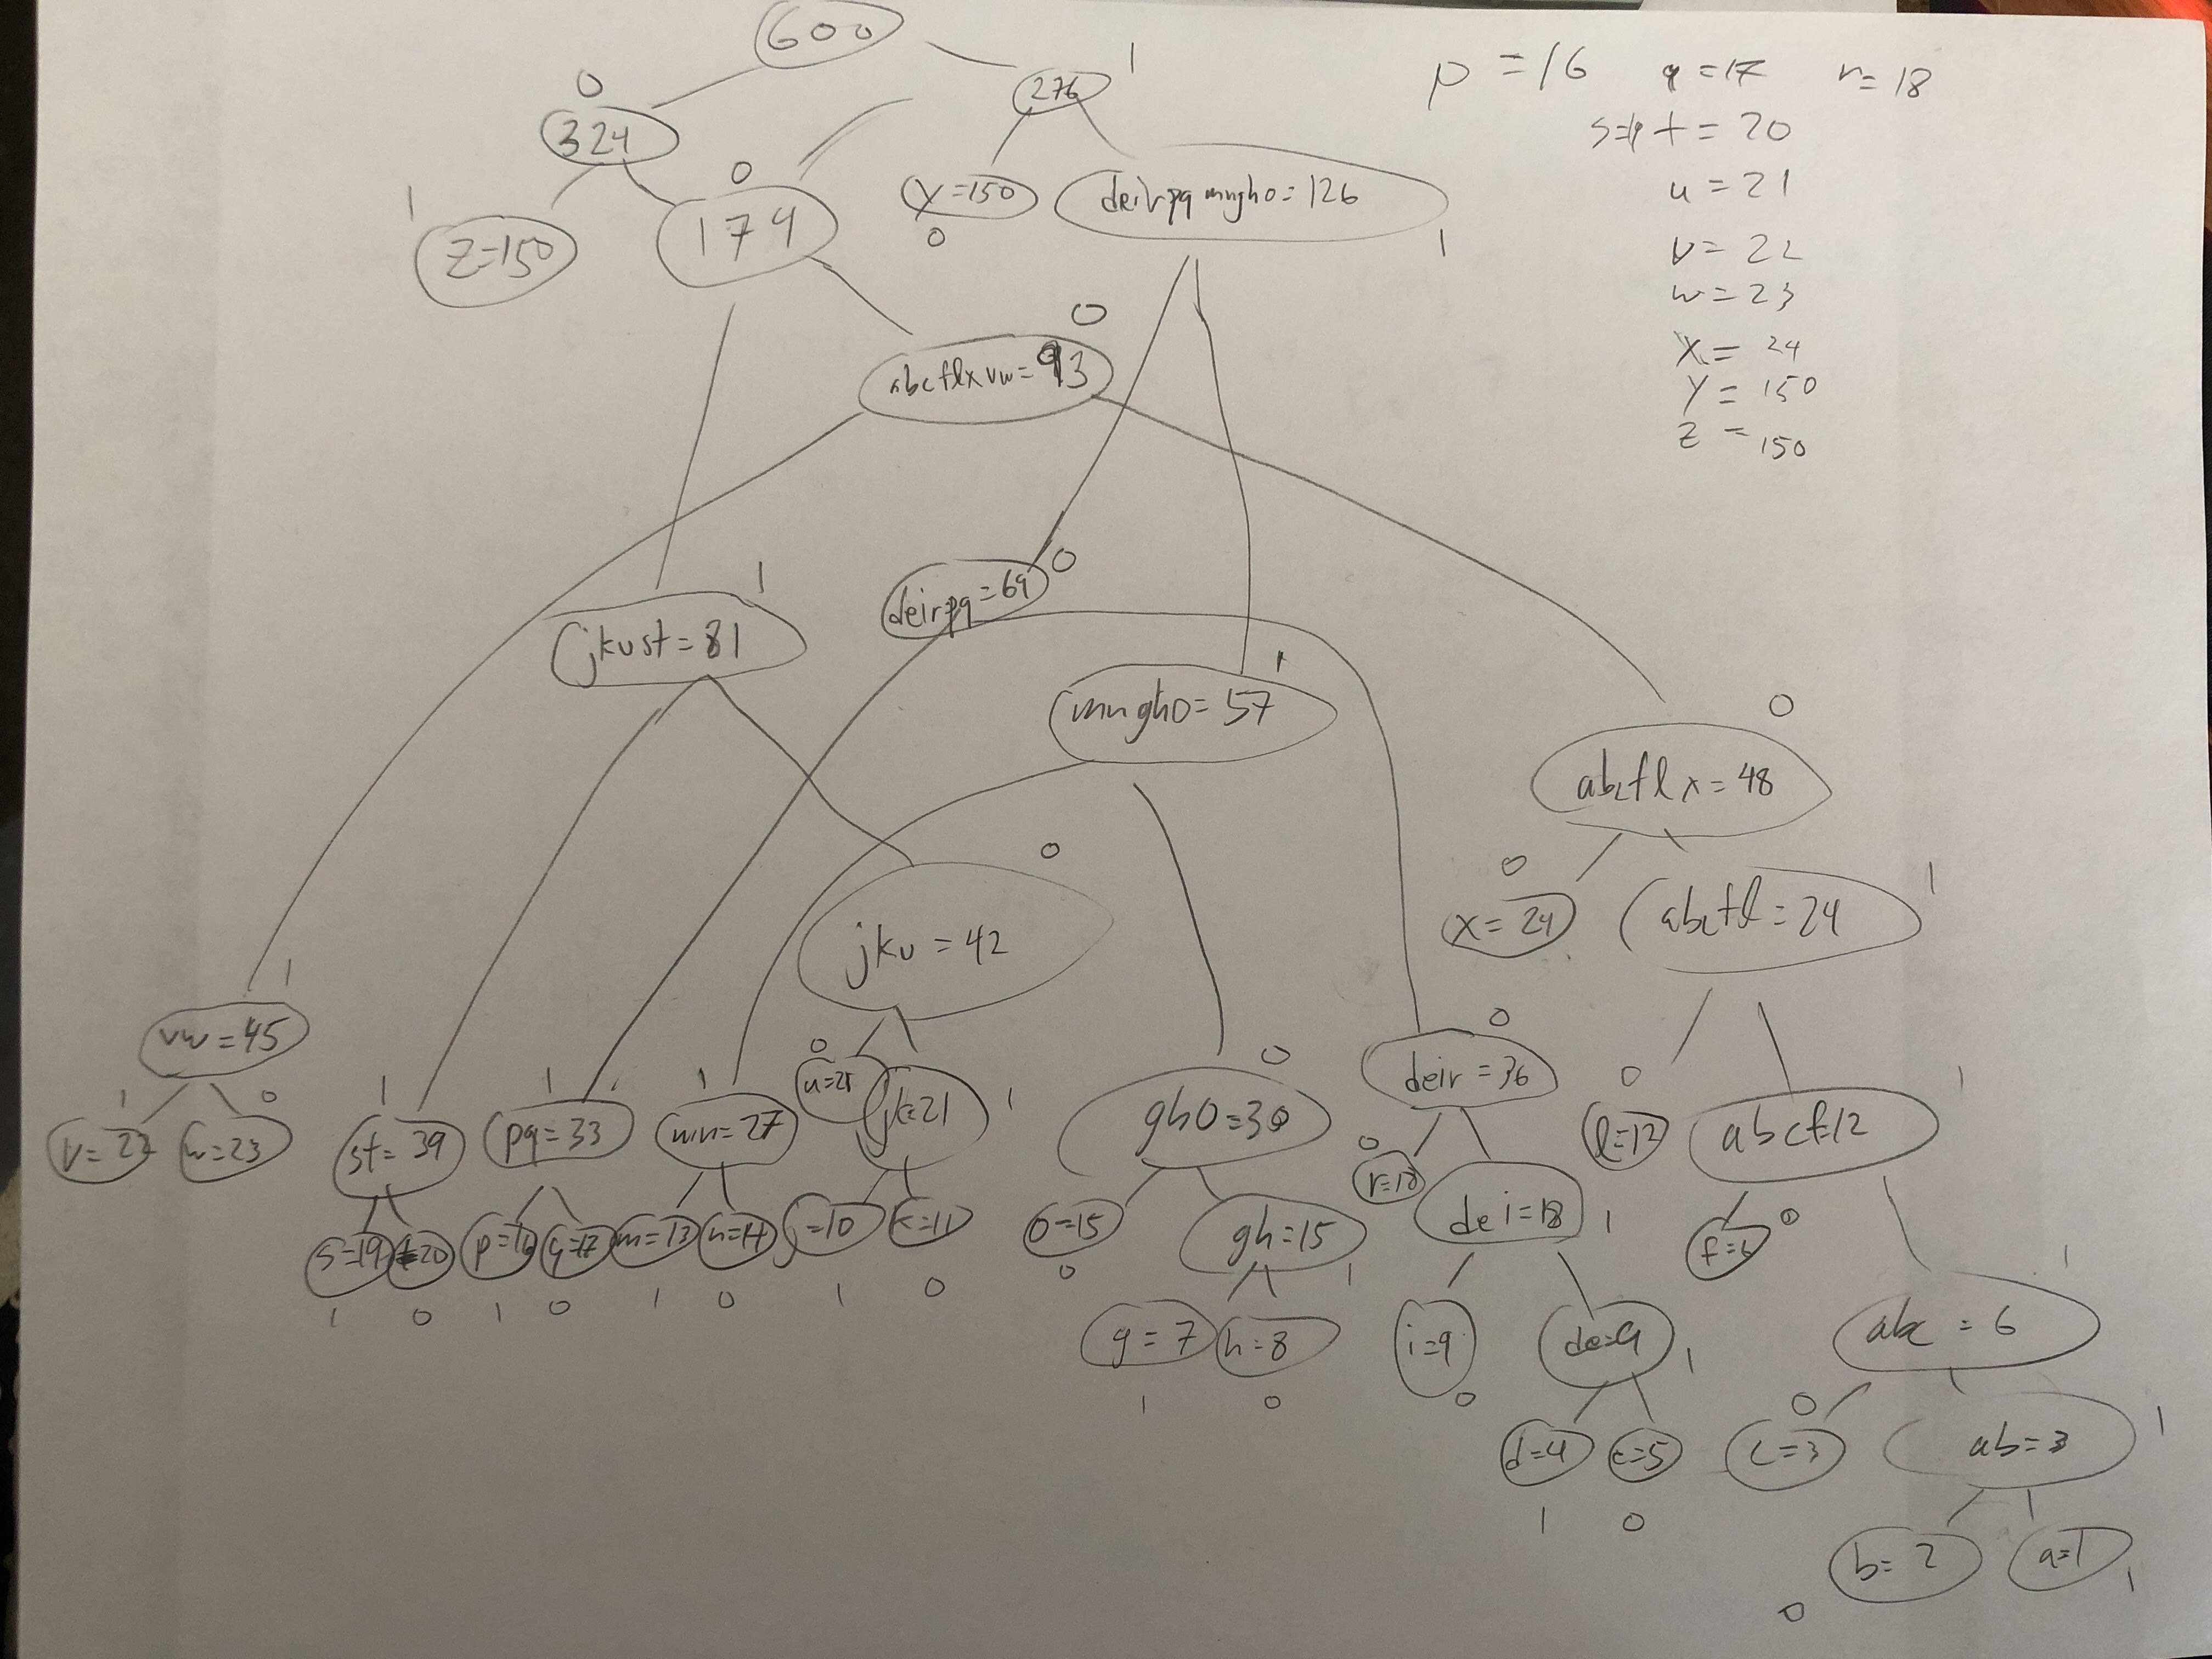 600
p = 16 q = 17 r = 18
0 324
276 1
s=19 t = 20
u = 21
v = 22
w = 23
x = 24
y = 150
z = 150
1 z=150
0 174
y=150 0
deirpq mngho = 126 1
0
abcflxvw = 93
1
jkust = 81
deirpq = 69 0
1
mngho = 57
0
abcflx = 48
0
jku = 42
0
x = 24
abcfl = 24 1
1
vw = 45
1 0
v = 22 w = 23
1
st = 39
1
pq = 33
1
mn = 27
0
u=21
jk=21 1
0
gho = 30
0
deir = 36
0
l=12
abcf=12 1
s=19 t=20 p=16 q=17 m=13 n=14 j=10 k=11
1 0 1 0 1 0 1 0
o=15
0
gh=15
1
0
r=18
dei=18 1
f=6 0
g = 7 h = 8
1 0
i=9
0
de=9 1
1
abc = 6
d=4 e=5
1 0
0
c=3
ab=3 1
b=2 a=1
0 1